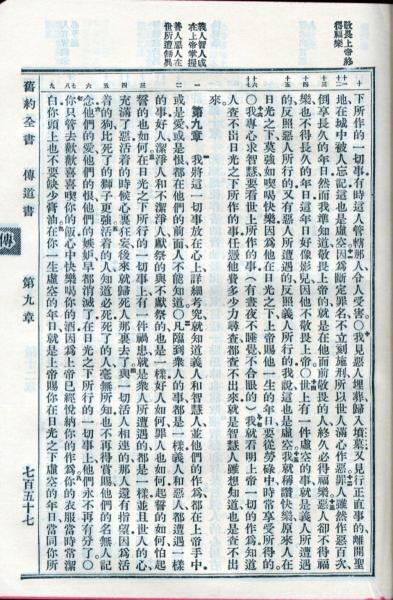 敬畏上帝終得福樂
義人智人或在上帝掌握
善人惡人在世所遭無異
十 十一 十二 十三 十四 十五 十六 十七
下所作的一切事有時這人管轄那人令人受害○我見惡人埋葬歸入墳塋又見行正直事的離開聖
地在城中被人忘記這也是虛空因爲斷定罪名不立刻施刑所以世人滿心作惡罪人雖然作惡百次
倒享長久的年日然而我準知道敬畏上帝的就是在他面前敬畏的人終久必得福樂惡人卻不得福
樂也不得長久的年日這年日好像影兒因他不敬畏上帝○世上有一件虛空的事就是義人所遭遇
的反照惡人所行的又有惡人所遭遇的反照義人所行的我說這也是虛空我就稱讚快樂原來人在
日光之下莫強如喫喝快樂因爲他在日光之下上帝賜他一生的年日要從勞碌中時常享受所得的
○我專心求智慧要看世上所作的事（有晝夜不睡覺不合眼的）我就看明上帝一切的作爲知道
人查不出日光之下所作的事任憑他費多少力尋查都查不出來就是智慧人雖想知道也是查不出
來
一 二 三 四 五 六 七 八 九
第九章 我將這一切事放在心上詳細考究就知道義人和智慧人並他們的作爲都在上帝手中
或是愛或是恨都在他們的前面人不能知道○凡臨到衆人的事都是一樣義人和惡人都遭遇一樣
的事好人潔淨人和不潔淨人獻祭的與不獻祭的也是一樣好人如何罪人也如何起誓的如何怕起
誓的也如何在日光之下所行的一切事上有一件禍患就是衆人所遭遇的都是一樣並且世人的心
充滿了惡活着的時候心裏狂妄後來就歸死人那裏去了與一切活人相連的那人還有指望因爲活
着的狗比死了的獅子更強活着的人知道必死死了的人毫無所知也不再得賞賜他們的名無人記
念他們的愛他們的恨他們的嫉妒早都消滅了在日光之下所行的一切事上他們永不再有分了○
你只管去歡歡喜喜喫你的飯心中快樂喝你的酒因爲上帝已經悅納你的作爲你的衣服當時常潔
白你頭上也不要缺少膏油在你一生虛空的年日就是上帝賜你在日光之下虛空的年日當同你所
舊約全書 傳道書
傳
第九章
七百五十七